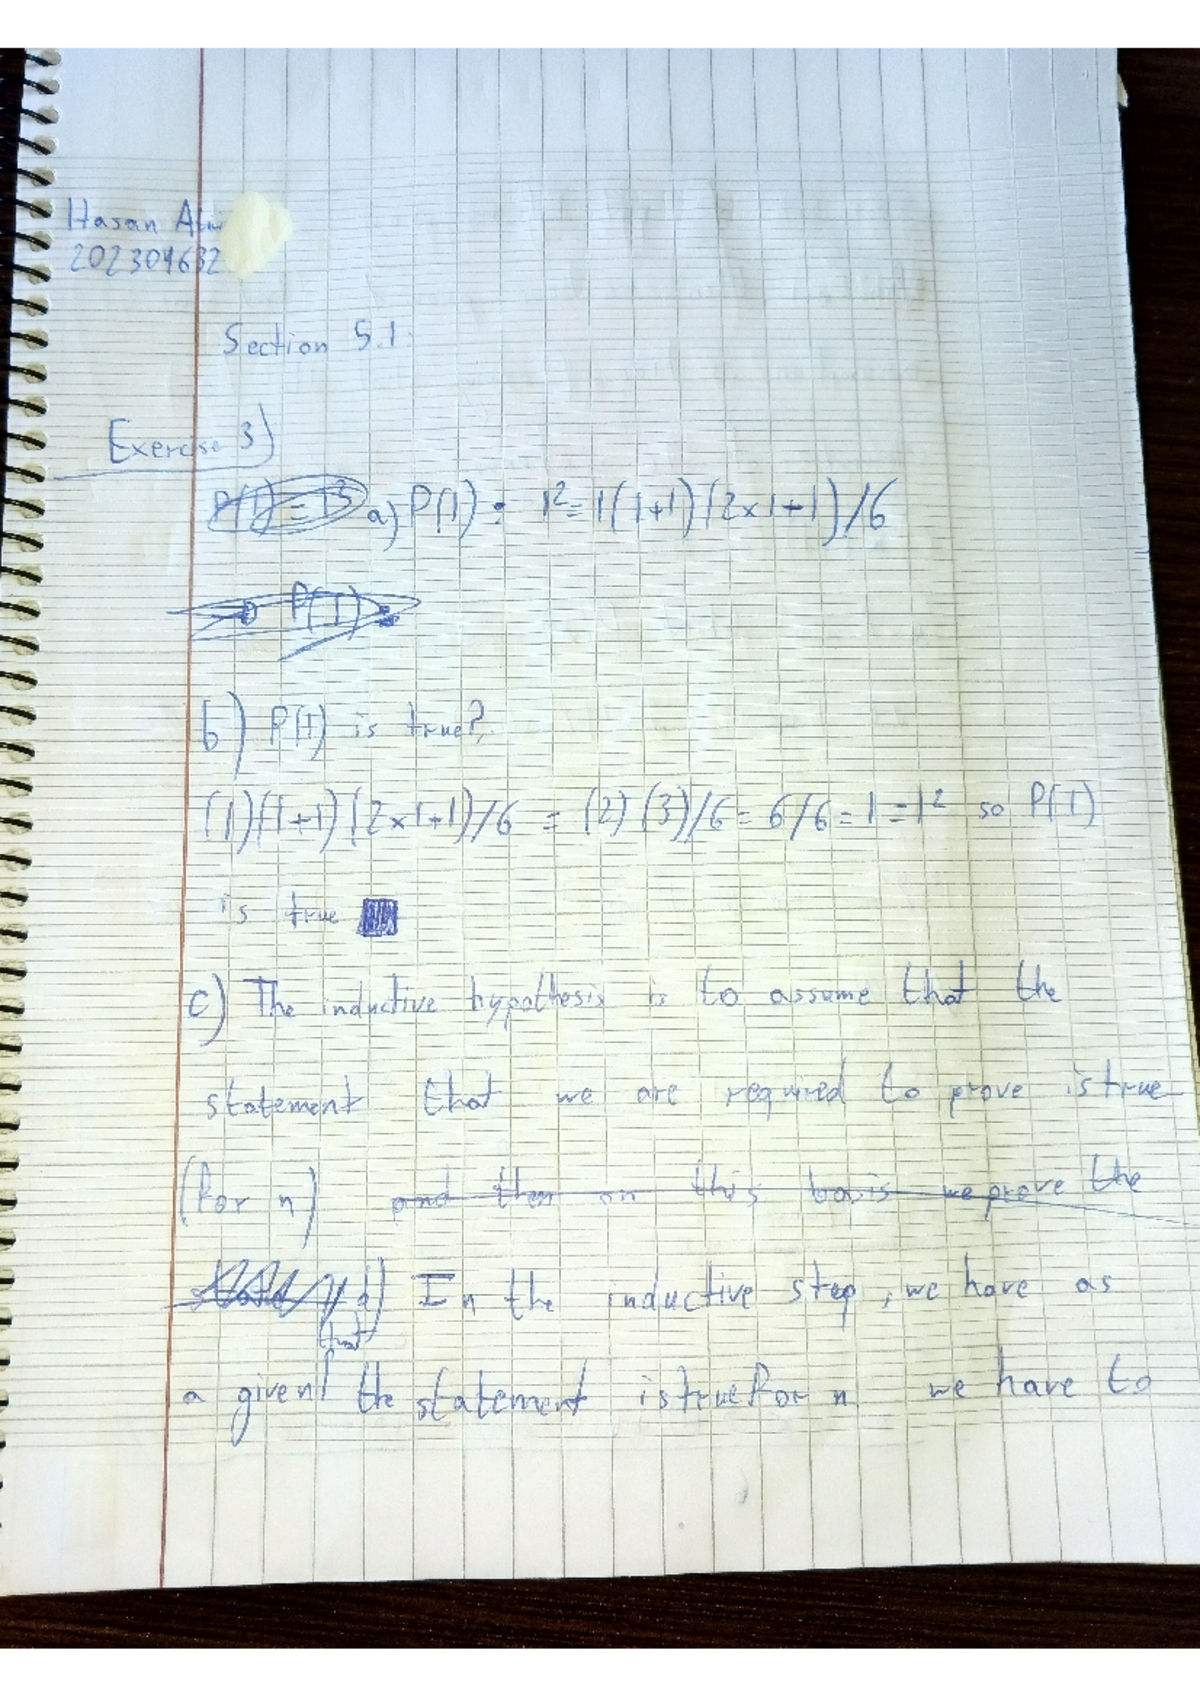 Hasan
202304632
Section 5.1:
Exercise 3)
a) P(1): 1²=1(1+1)(2x1+1)/6
P(1)
b) P(1) is true?
(1)(1+1)(2x1+1)/6 = (2)(3)/6 = 6/6 = 1 = 1² so P(1)
is true
c) The inductive hypothesis is to assume that the
statement that we are required to prove is true
(for n) and then on this basis we prove the
d) In the inductive step, we have as
that
a given the statement is true for n we have to